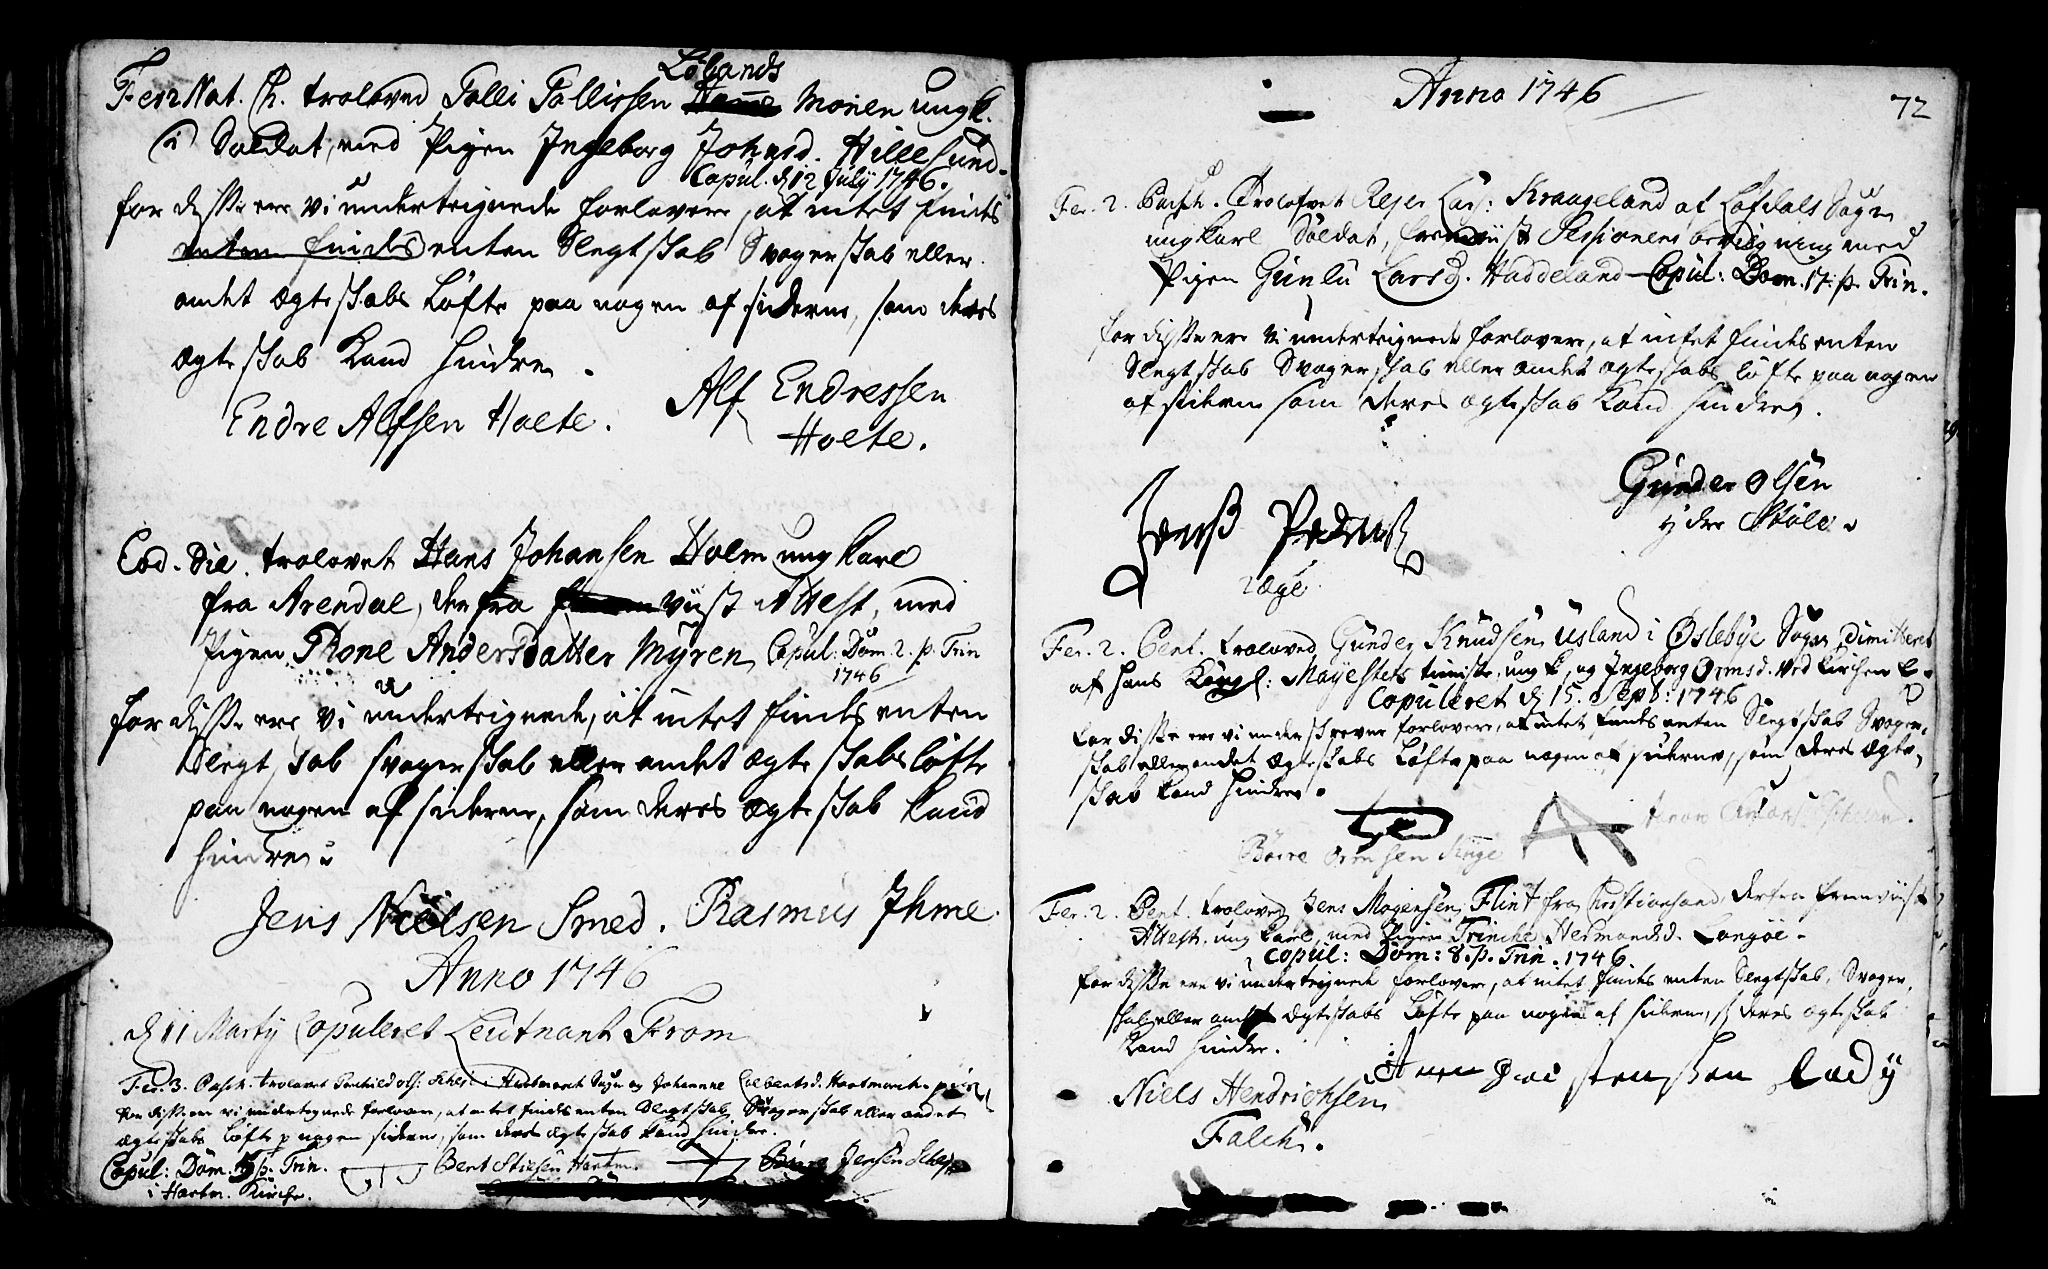 Løbands
Fer 2 Nat. Ch. troloved Tolli Tollissen Monen ungk.
Soldat, med Pigen Ingeborg Johnsd. Hillesund.
Copul. d 12 July 1746.
for disse ere vi undertegnede forlovere, at intet findes
enten findes enten Slegtskab Svogerskab eller
andet ægteskabs Løfte paa nogen af siderne, som deres
ægteskab kand hindre.
Endre Alfsen Holte. Alf Endressen
Holte.
Eod. Die. trolovet Hans Johansen Holm ungkarl
fra Arendal, der fra viist Attest, med
Pigen Thone Andersdatter Myren Copul: Dom. 2. p. Trin
1746
for disse ere vi undertegnede, at intet findes enten
Slegtskab svogerskab eller andet ægteskabs løfte
paa nogen af siderne, som deres ægteskab kand
hindre.
Jens Nielsen Smed. Rasmus Ihme.
Anno 1746
d 11 Martij Copuleret Leutnant From
Fer. 3. Pasch. trolovet Olss: i Hartmarck Sogn og Johanne Hartmarck
for disse ere vi undertegnede forlovere, at intet findes enten Slegtskab Svogerskab eller andet
ægteskabs løfte p nogen siderne, som deres ægteskab kand hindre.
Copul: Dom. p. Trin. Bent Hartm. Børre Jensen
i Hartm. Kirche.
Anno 1746
72
Fer. 2. Pasch. Trolofvet Rejer Lars: Kraageland af Løfdals Sogn
ungkarl Soldat, fremviist Sessionens bevilgning med
Pigen Gunlu Larsd. Haddeland Copul: Dom. 17. p. Trin.
for disse ere vi undertegnede forlovere, at intet findes enten
Slegtskab Svogerskab eller andet ægteskabs løfte paa nogen
af siderne som deres ægteskab kand hindre.
Gunder Olsen
ydre Støle
Jenß
Fer. 2. Pent. troloved Gunder Knudsen Usland i Øslebye Sogn, dimitteret
af hans Kongl: Mayestets tieniste, ungk. og Ingeborg Ormsd. ved Kirchen
Copuleret d 15. Sept: 1746
for disse ere vi underskrevne forlovere, at intet findes enten Slegtskab Svoger-
skab eller andet ægteskabs Løfte paa nogen af siderne, som deres ægte-
skab kand hindre.
Børre Ormsen
Fer. 2. Pent. trolovet Jens Mogensen Flint fra Christiansand, derfra fremviist
Attest. ungkarl, med Pigen Trinche Hermandsd. Langøe.
Copul: Dom: 8. p. Trin. 1746
for disse ere vi undertegnede forlovere, at intet findes enten Slegtskab, Svoger-
skab eller andet ægteskabs Løfte paa nogen af siderne, s deres ægteskab
kand hindre.
Niels Hendrichsen
Falch.